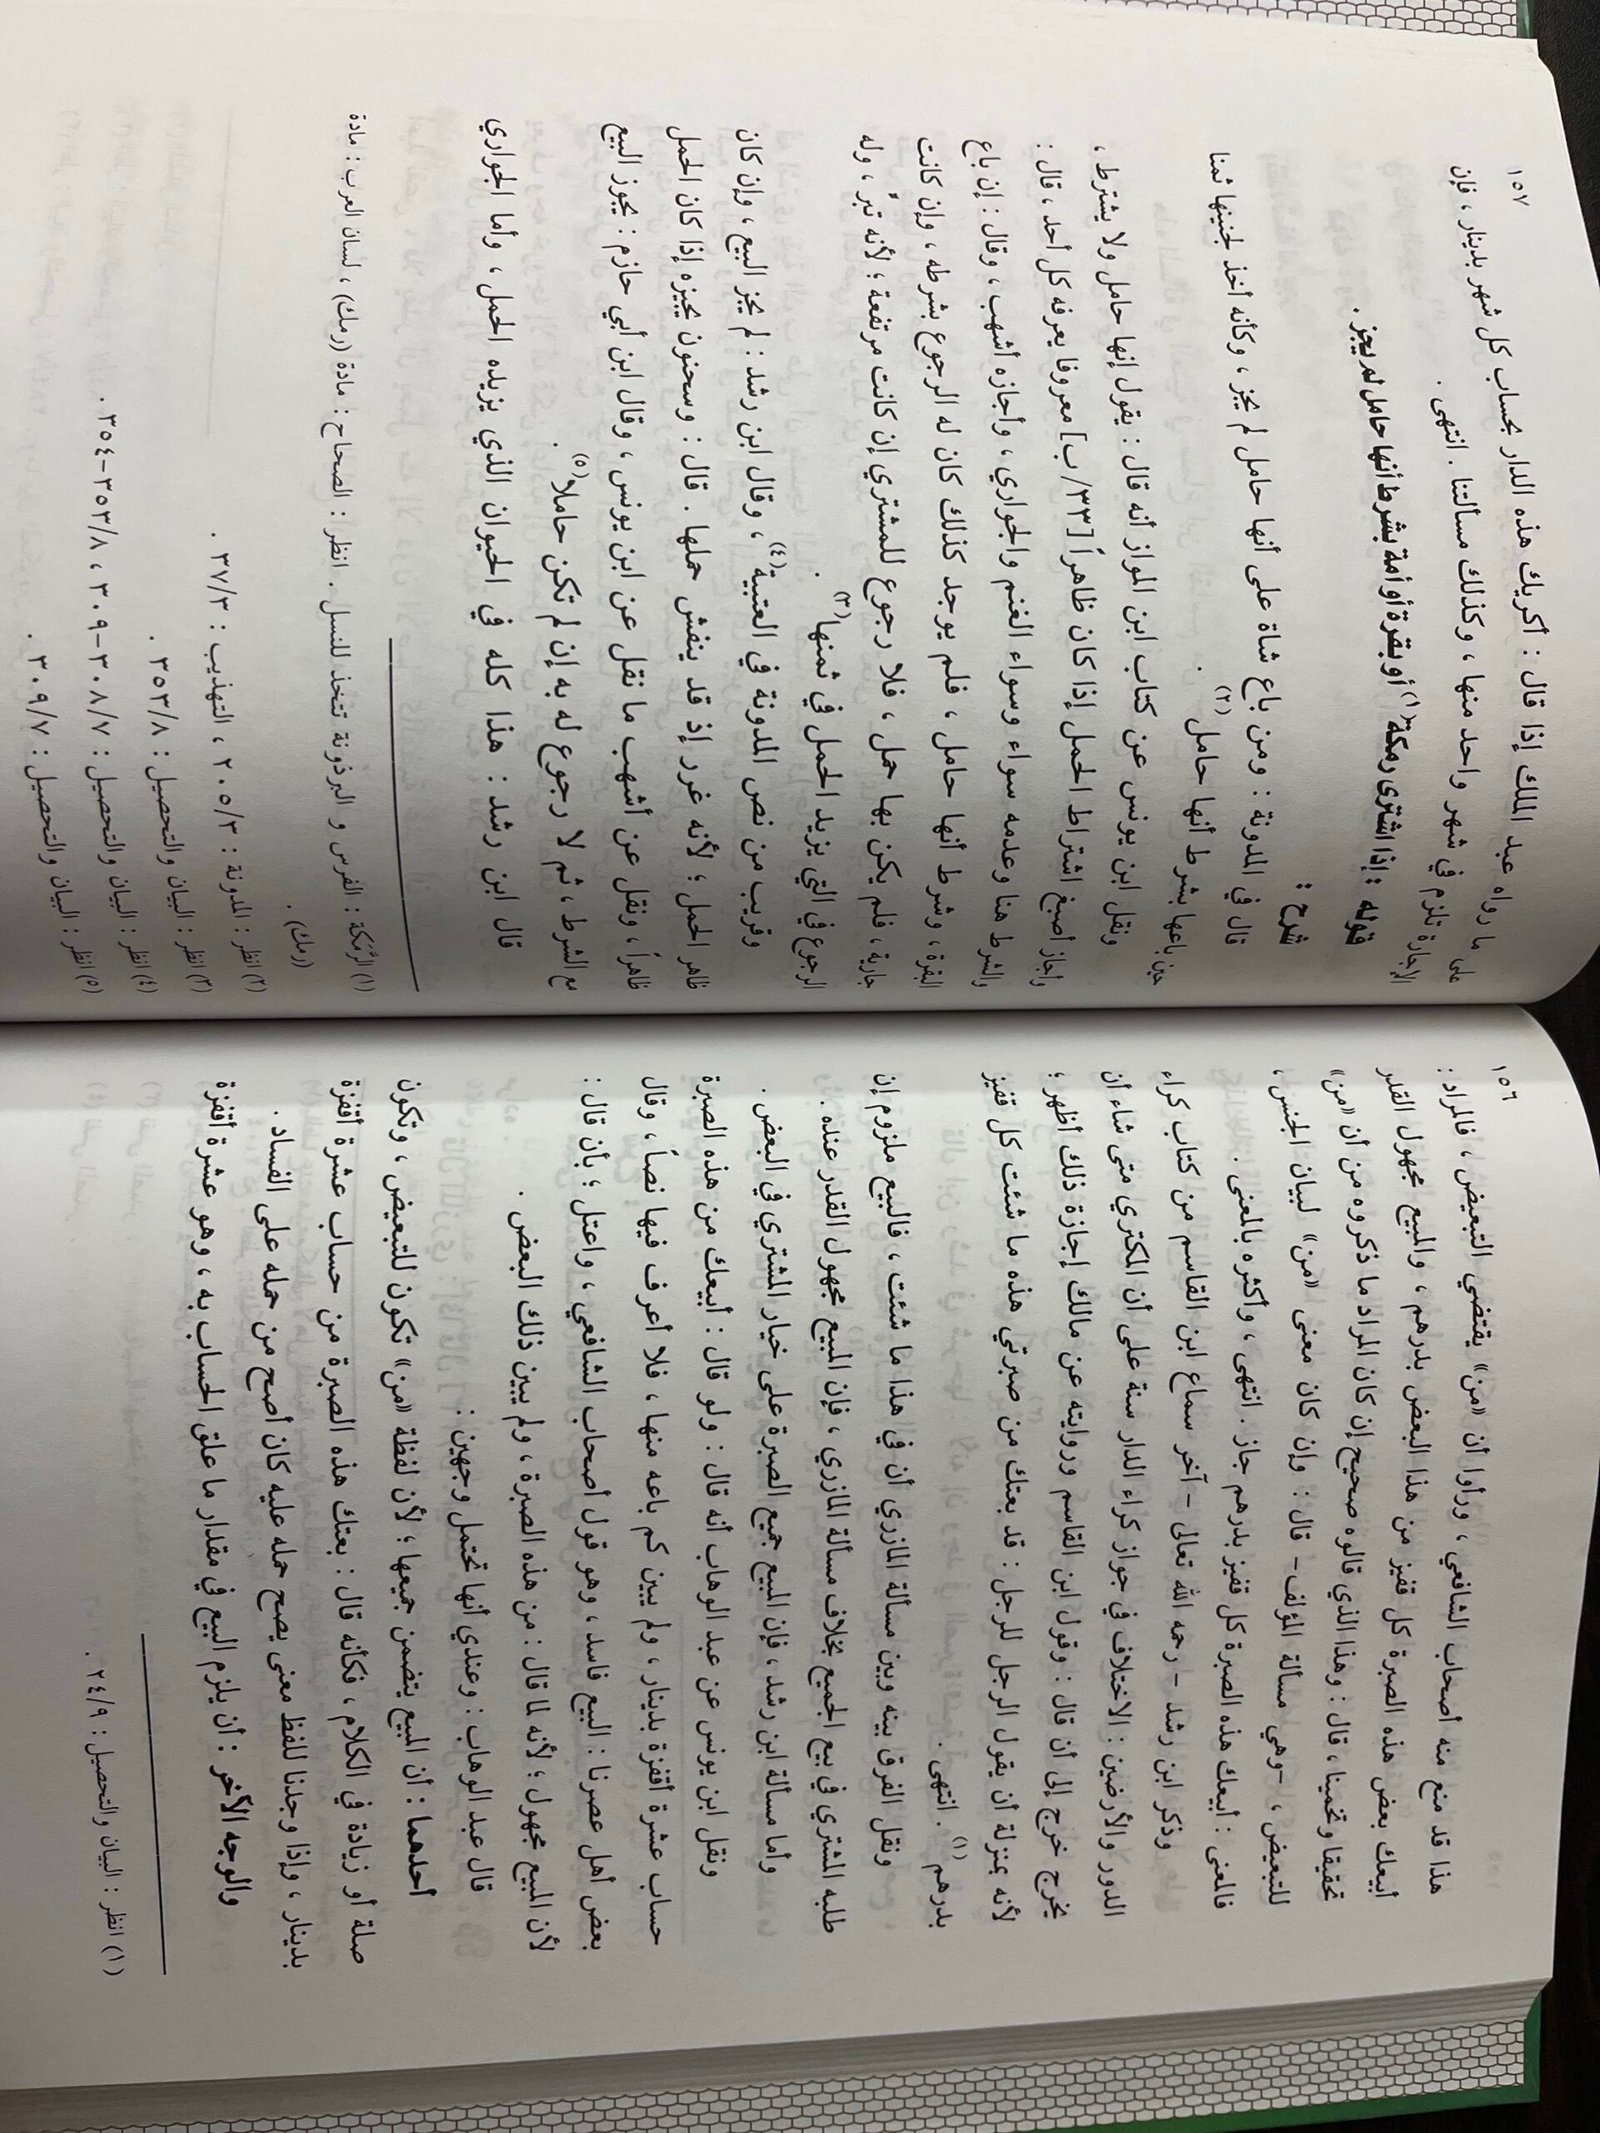 ١٥٦
هذا قد منع منه أصحاب الشافعي ، ورأوا أن «من» يقتضي التبعيض ، فالمراد :
أبيعك بعض هذه الصبرة كل قفيز من هذا البعض بدرهم ، والمبيع مجهول القدر
تحقيقا وتخمينا ، قال : وهذا الذي قالوه صحيح إن كان المراد ما ذكروه من أن «من»
للتبعيض ، -وهي مسألة المؤلف- قال : وإن كان معنى «من» لبيان الجنس ،
فالمعنى : أبيعك هذه الصبرة كل قفيز بدرهم جاز . انتهى ، وأكثره بالمعنى .
وذكر ابن رشد - رحمه الله تعالى - آخر سماع ابن القاسم من كتاب كراء
الدور والأرضين : الاختلاف في جواز كراء الدار سنة على أن المكتري متى شاء أن
يخرج خرج إلى أن قال : وقول ابن القاسم وروايته عن مالك إجازة ذلك أظهر ؛
لأنه بمنزلة أن يقول الرجل للرجل : قد بعتك من صبرتي هذه ما شئت كل قفيز
بدرهم (١) . انتهى .
ونقل الفرق بينه وبين مسألة المازري أن في هذا ما شئت ، فالبيع ملزوم إن
طلبه المشتري في بيع الجميع بخلاف مسألة المازري ، فإن المبيع مجهول القدر عنده .
وأما مسألة ابن رشد ، فإن المبيع جميع الصبرة على خيار المشتري في البعض .
ونقل ابن يونس عن عبد الوهاب أنه قال : ولو قال : أبيعك من هذه الصبرة
حساب عشرة أقفزة بدينار ، ولم يبين كم باعه منها ، فلا أعرف فيها نصاً ، وقال
بعض أهل عصرنا : البيع فاسد ، وهو قول أصحاب الشافعي ، واعتل ؛ بأن قال :
لأن المبيع مجهول ؛ لأنه لما قال : من هذه الصبرة ، ولم يبين ذلك البعض .
قال عبد الوهاب : وعندي أنها تحتمل وجهين :
أحدهما : أن المبيع يتضمن جميعها ؛ لأن لفظة «من» تكون للتبعيض ، وتكون
صلة أو زيادة في الكلام ، فكأنه قال : بعتك هذه الصبرة من حساب عشرة أقفزة
بدينار ، وإذا وجدنا للفظ معنى يصح حمله عليه كان أصح من حمله على الفساد .
والوجه الآخر : أن يلزم البيع في مقدار ما علق الحساب به ، وهو عشرة أقفزة
(١) انظر : البيان والتحصيل : ٢٤/٩ .
١٥٧
على ما رواه عبد الملك إذا قال : أكريك هذه الدار بحساب كل شهر بدينار ، فإن
الإجارة تلزم في شهر واحد منها ، وكذلك مسألتنا . انتهى .
قوله : إذا اشترى رمكة (١) أو بقرة أو أمة بشرط أنها حامل لم يجز .
شرح :
قال في المدونة : ومن باع شاة على أنها حامل لم يجز ، وكأنه أخذ لجنينها ثمنا
حين باعها بشرط أنها حامل (٢) .
ونقل ابن يونس عن كتاب ابن المواز أنه قال : يقول إنها حامل ولا يشترط ،
وأجاز أصبغ اشتراط الحمل إذا كان ظاهراً [٣٣/ب] معروفا يعرفه كل أحد ، قال :
والشرط هنا وعدمه سواء وسواء الغنم والجواري ، وأجازه أشهب ، وقال : إن باع
البقرة ، وشرط أنها حامل ، فلم يوجد كذلك كان له الرجوع بشرطه ، وإن كانت
جارية ، فلم يكن بها حمل ، فلا رجوع للمشتري إن كانت مرتفعة ؛ لأنه تبرٍ ، وله
الرجوع في التي يزيد الحمل في ثمنها (٣) .
وقريب من نص المدونة في العتبية (٤) ، وقال ابن رشد : لم يجز البيع ، وإن كان
ظاهر الحمل ؛ لأنه غرر إذ قد ينفش حملها . قال : وسحنون يجيزه إذا كان الحمل
ظاهراً ، ونقل عن أشهب ما نقل عن ابن يونس ، وقال ابن أبي حازم : يجوز البيع
مع الشرط ، ثم لا رجوع له به إن لم تكن حاملا (٥) .
قال ابن رشد : هذا كله في الحيوان الذي يزيده الحمل ، وأما الجواري
(١) الرَّمَكة : الفرس و البرذونة تتخذ للنسل . انظر : الصحاح : مادة (رمك) ، لسان العرب : مادة
(رمك) .
(٢) انظر : المدونة : ٢٠٥/٣ ، التهذيب : ٣٧/٣ .
(٣) انظر : البيان والتحصيل : ٣٥٣/٨ .
(٤) انظر : البيان والتحصيل : ٣٠٨/٧-٣٠٩ ، ٣٥٣/٨-٣٥٤ .
(٥) انظر : البيان والتحصيل : ٣٠٩/٧ .